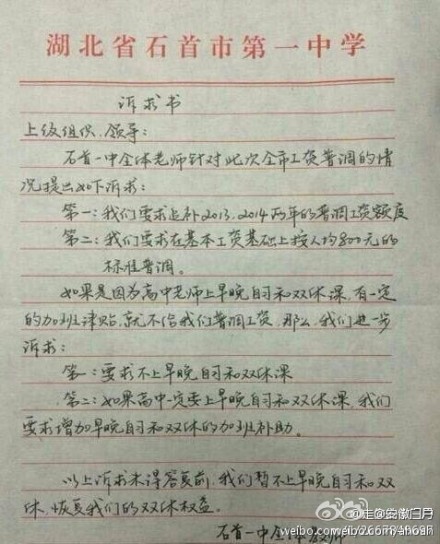 湖北省石首市第一中学
诉求书
上级组织、领导：
石首一中全体老师针对此次全市工资普调的情
况提出如下诉求：
第一：我们要求追补2013、2014两年的普调工资额度
第二：我们要求在基本工资基础上按人均800元的
标准普调。
如果是因为高中老师上早晚自习和双休课，有一定
的加班津贴，就不给我们普调工资，那么，我们进一步
诉求：
第一：要求不上早晚自习和双休课
第二：如果高中一定要上早晚自习和双休课，我们
要求增加早晚自习和双休的加班补助。
以上诉求未得答复前，我们暂不上早晚自习和双
休，恢复我们的双休权益。
石首一中全体教师
@走@安徽归月